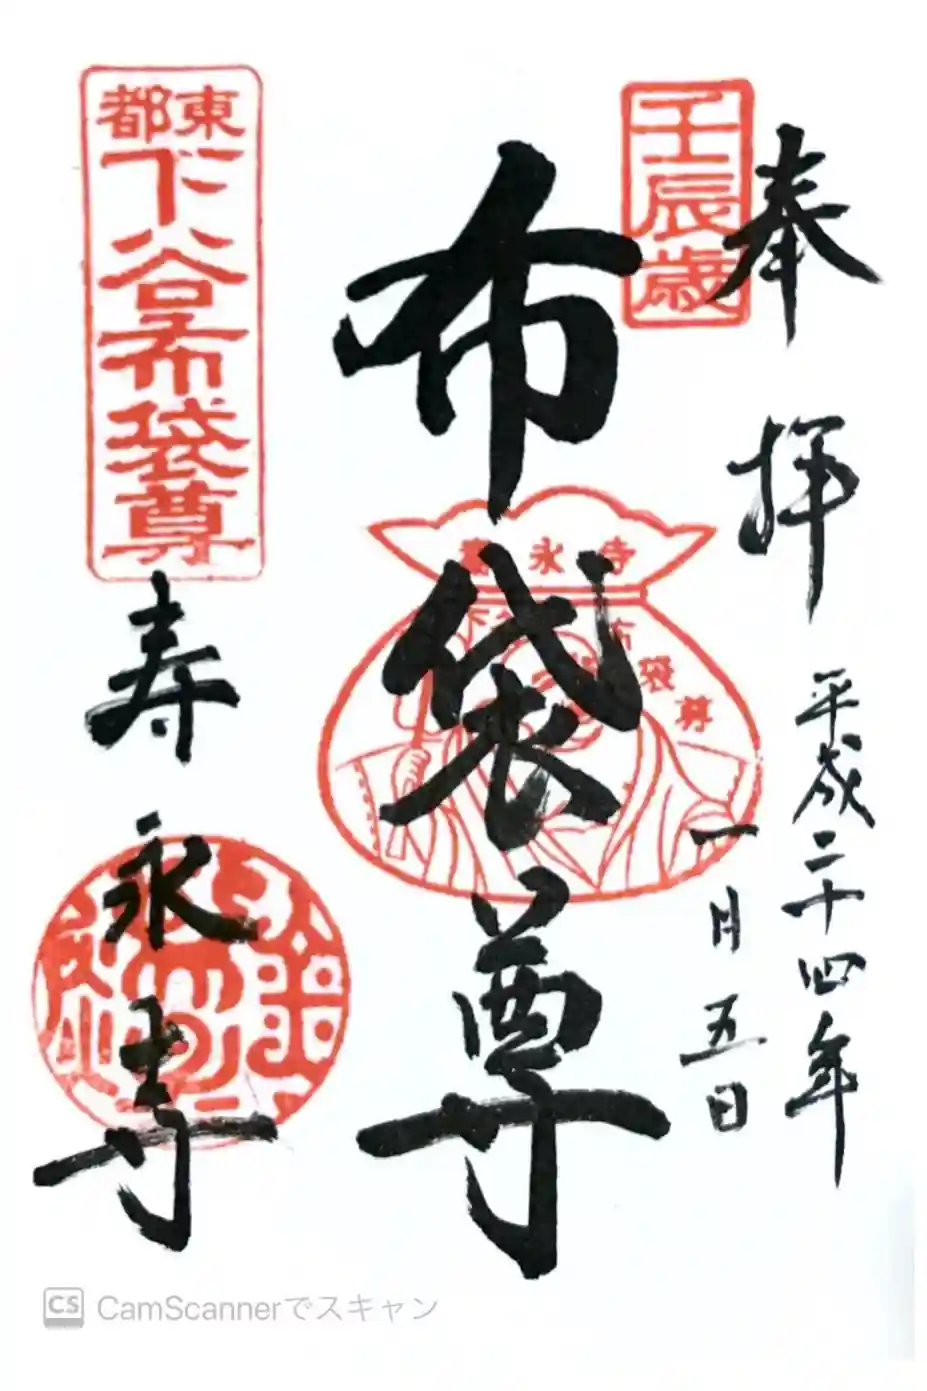 奉拝
平成二十四年
一月五日
壬辰歳
布袋尊
壽永寺
下谷布袋尊
東都
下谷布袋尊
寿永寺
CS CamScannerでスキャン